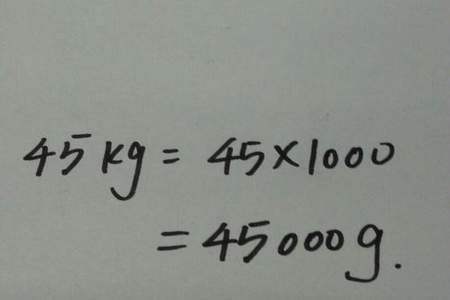 45 kg = 45×1000
= 45000g.